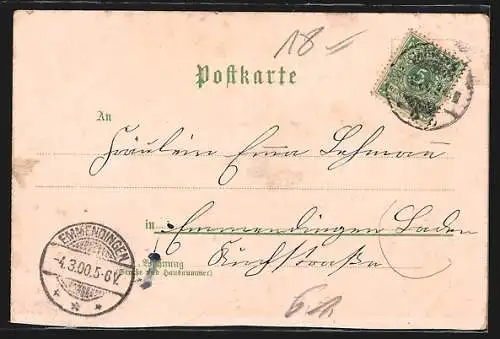 18 =
Postkarte
5
An
Fräulein Emma Lehmann
in Emmendingen Baden
Kirchstraße
Wohnung
(Straße und Hausnummer)
EMMENDINGEN
-4.3.00.5-6V.